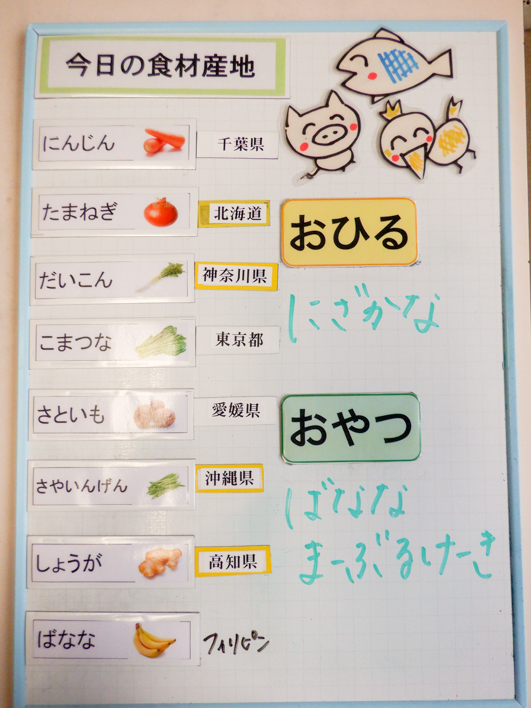 今日の食材産地
にんじん 千葉県
たまねぎ 北海道
だいこん 神奈川県
こまつな 東京都
さといも 愛媛県
さやいんげん 沖縄県
しょうが 高知県
ばなな フィリピン
おひる
にざかな
おやつ
ばなな
まーぶるけーき